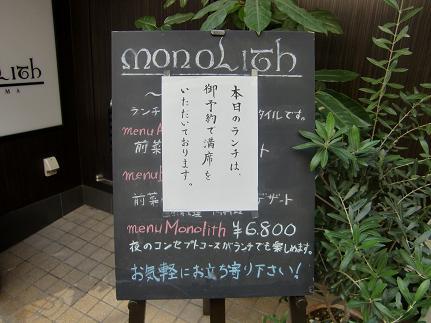 noLith
MA
monoLith
ランチ
タイルです。
menu
前菜
ト
menu
前菜
デザート
menu Monolith ¥6.800
夜のコンセプトコースがランチでも楽しめます。
お気軽にお立ち寄り下さい!
本日のランチは、
御予約で満席を
いただいております。